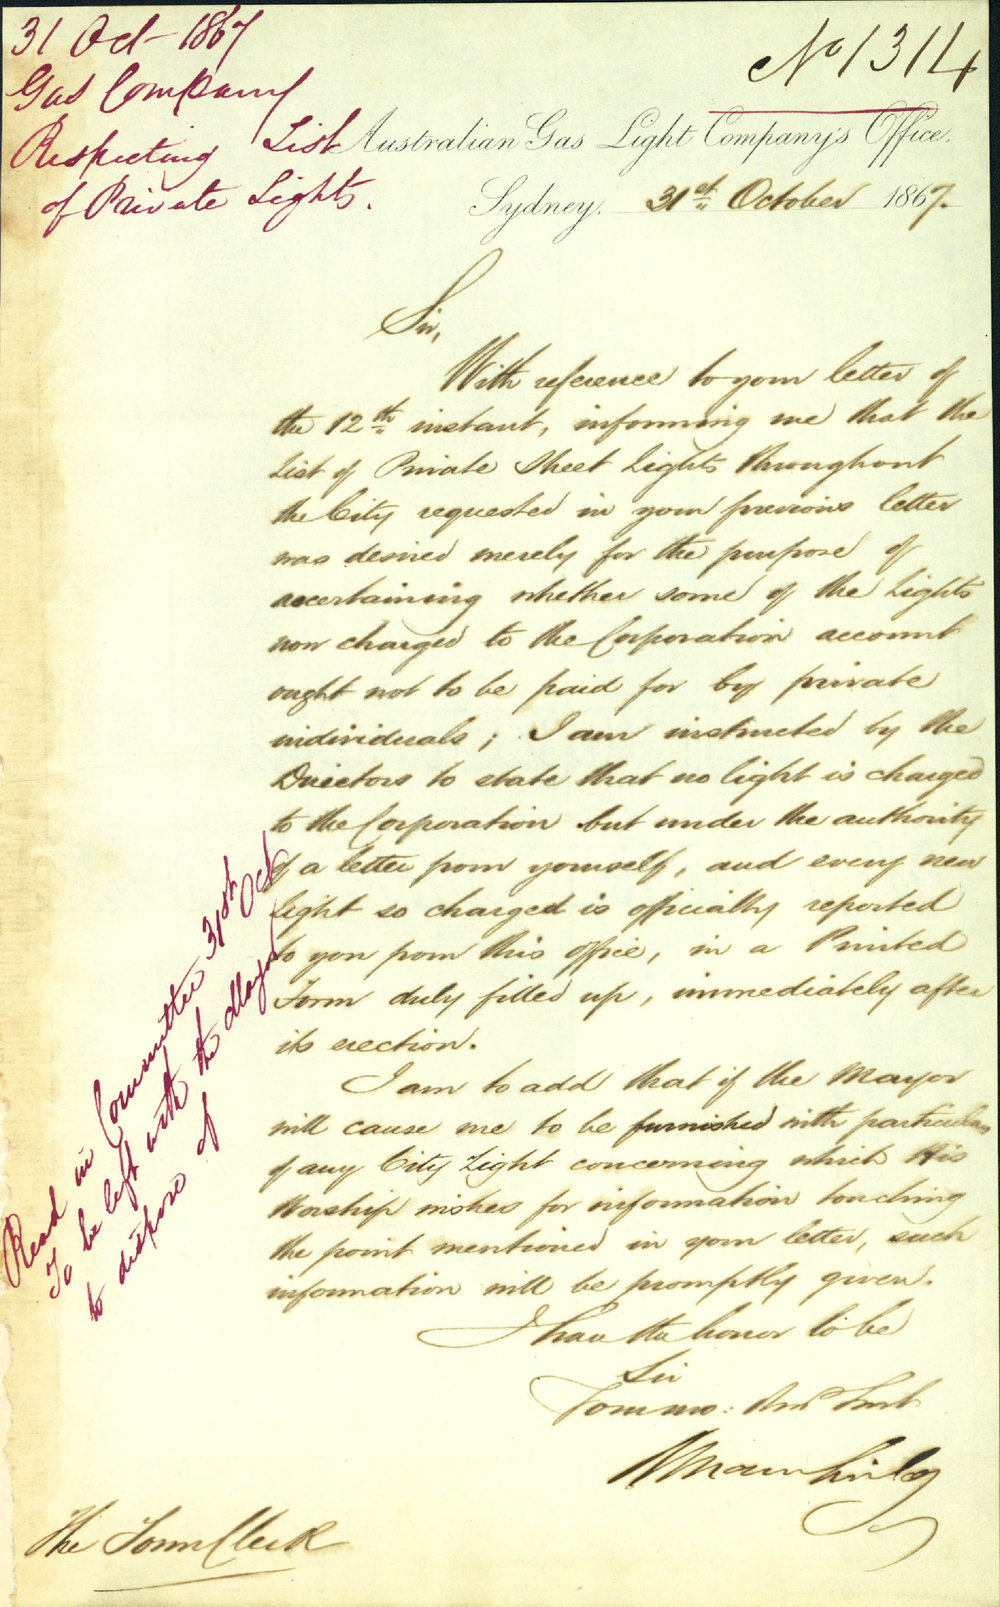 31 Oct 1867
Gas Company
Respecting List
of Private Lights.
No 1314
Australian Gas Light Company's Office.
Sydney. 31st October 1867.
Sir,
With reference to your letter of
the 12th instant, informing me that the
List of Private Street Lights throughout
the City requested in your previous letter
was desired merely for the purpose of
ascertaining whether some of the Lights
now charged to the Corporation account
ought not to be paid for by private
individuals; I am instructed by the
Directors to state that no light is charged
to the Corporation but under the authority
of a letter from yourself, and every new
light so charged is officially reported
to you from this office, in a Printed
Form duly filled up, immediately after
its erection.
I am to add that if the Mayor
will cause me to be furnished with particulars
of any City Light concerning which His
Worship wishes for information touching
the point mentioned in your letter, such
information will be promptly given.
I have the honor to be
Sir
Your mo: Obt Servt
The Town Clerk
Read in Committee 31st Oct
To be left with the Mayor
to dispose of